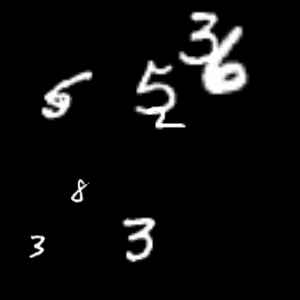 3 6
5 5
2
8
3 3